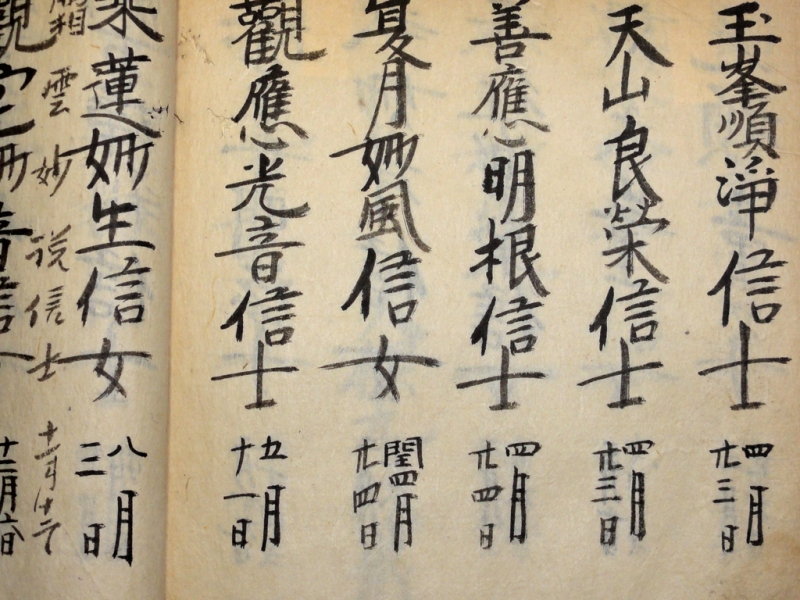 玉峯順淨信士
四月
廿三日
天山良榮信士
四月
廿三日
善應明根信士
四月
廿四日
夏月妙風信女
閏四月
廿四日
觀應光音信士
五月
十一日
蓮妙生信女
八月
三日
雲妙説信士